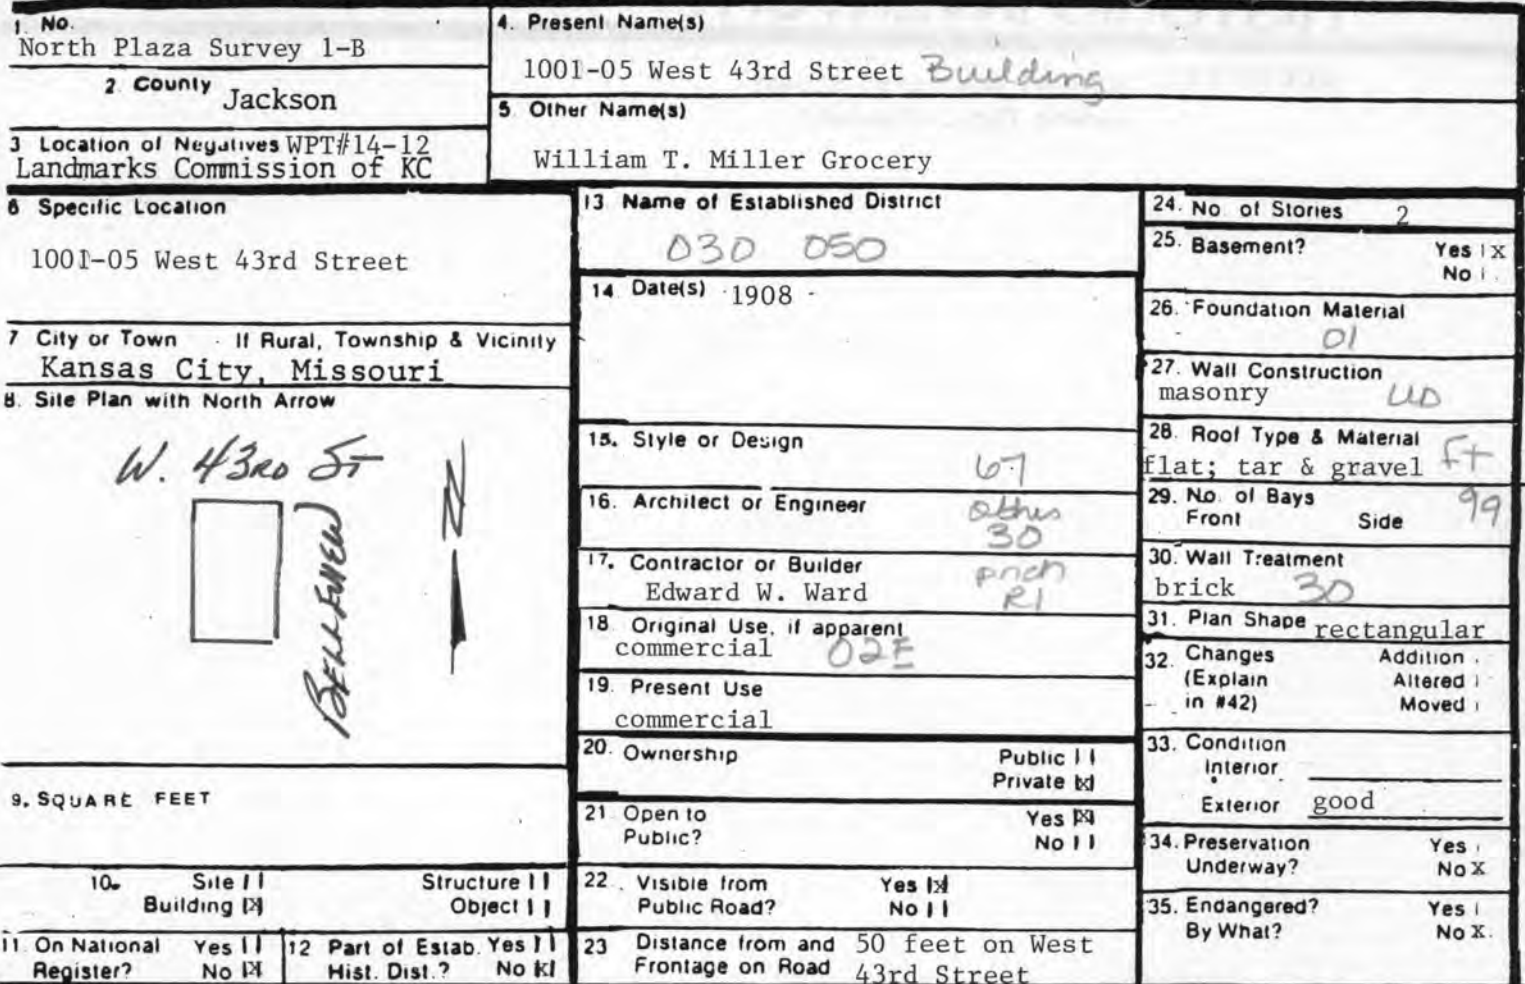 1. No.
North Plaza Survey 1-B
2. County
Jackson
3 Location of Negatives WPT#14-12
Landmarks Commission of KC
4. Present Name(s)
1001-05 West 43rd Street Building
5. Other Name(s)
William T. Miller Grocery
6 Specific Location
1001-05 West 43rd Street
7 City or Town If Rural, Township & Vicinity
Kansas City, Missouri
8. Site Plan with North Arrow
W. 43RD ST
BELLEVIEW
N
9. SQUARE FEET
10. Site Structure
Building X Object
11. On National Register? Yes No X
12 Part of Estab. Hist. Dist.? Yes No X
13 Name of Established District
030 050
14 Date(s) 1908
15. Style or Design
67
16. Architect or Engineer
others
30
17. Contractor or Builder
Edward W. Ward
R1
18. Original Use, if apparent
commercial 02E
19. Present Use
commercial
20. Ownership Public
Private X
21 Open to Yes X
Public? No
22. Visible from Yes X
Public Road? No
23 Distance from and 50 feet on West
Frontage on Road 43rd Street
24. No. of Stories 2
25. Basement? Yes X
No
26. Foundation Material
01
27. Wall Construction
masonry UD
28. Roof Type & Material
flat; tar & gravel FT
29. No. of Bays 99
Front Side
30. Wall Treatment
brick 30
31. Plan Shape rectangular
32. Changes Addition
(Explain Altered
in #42) Moved
33. Condition
Interior
Exterior good
34. Preservation Yes
Underway? No X
35. Endangered? Yes
By What? No X